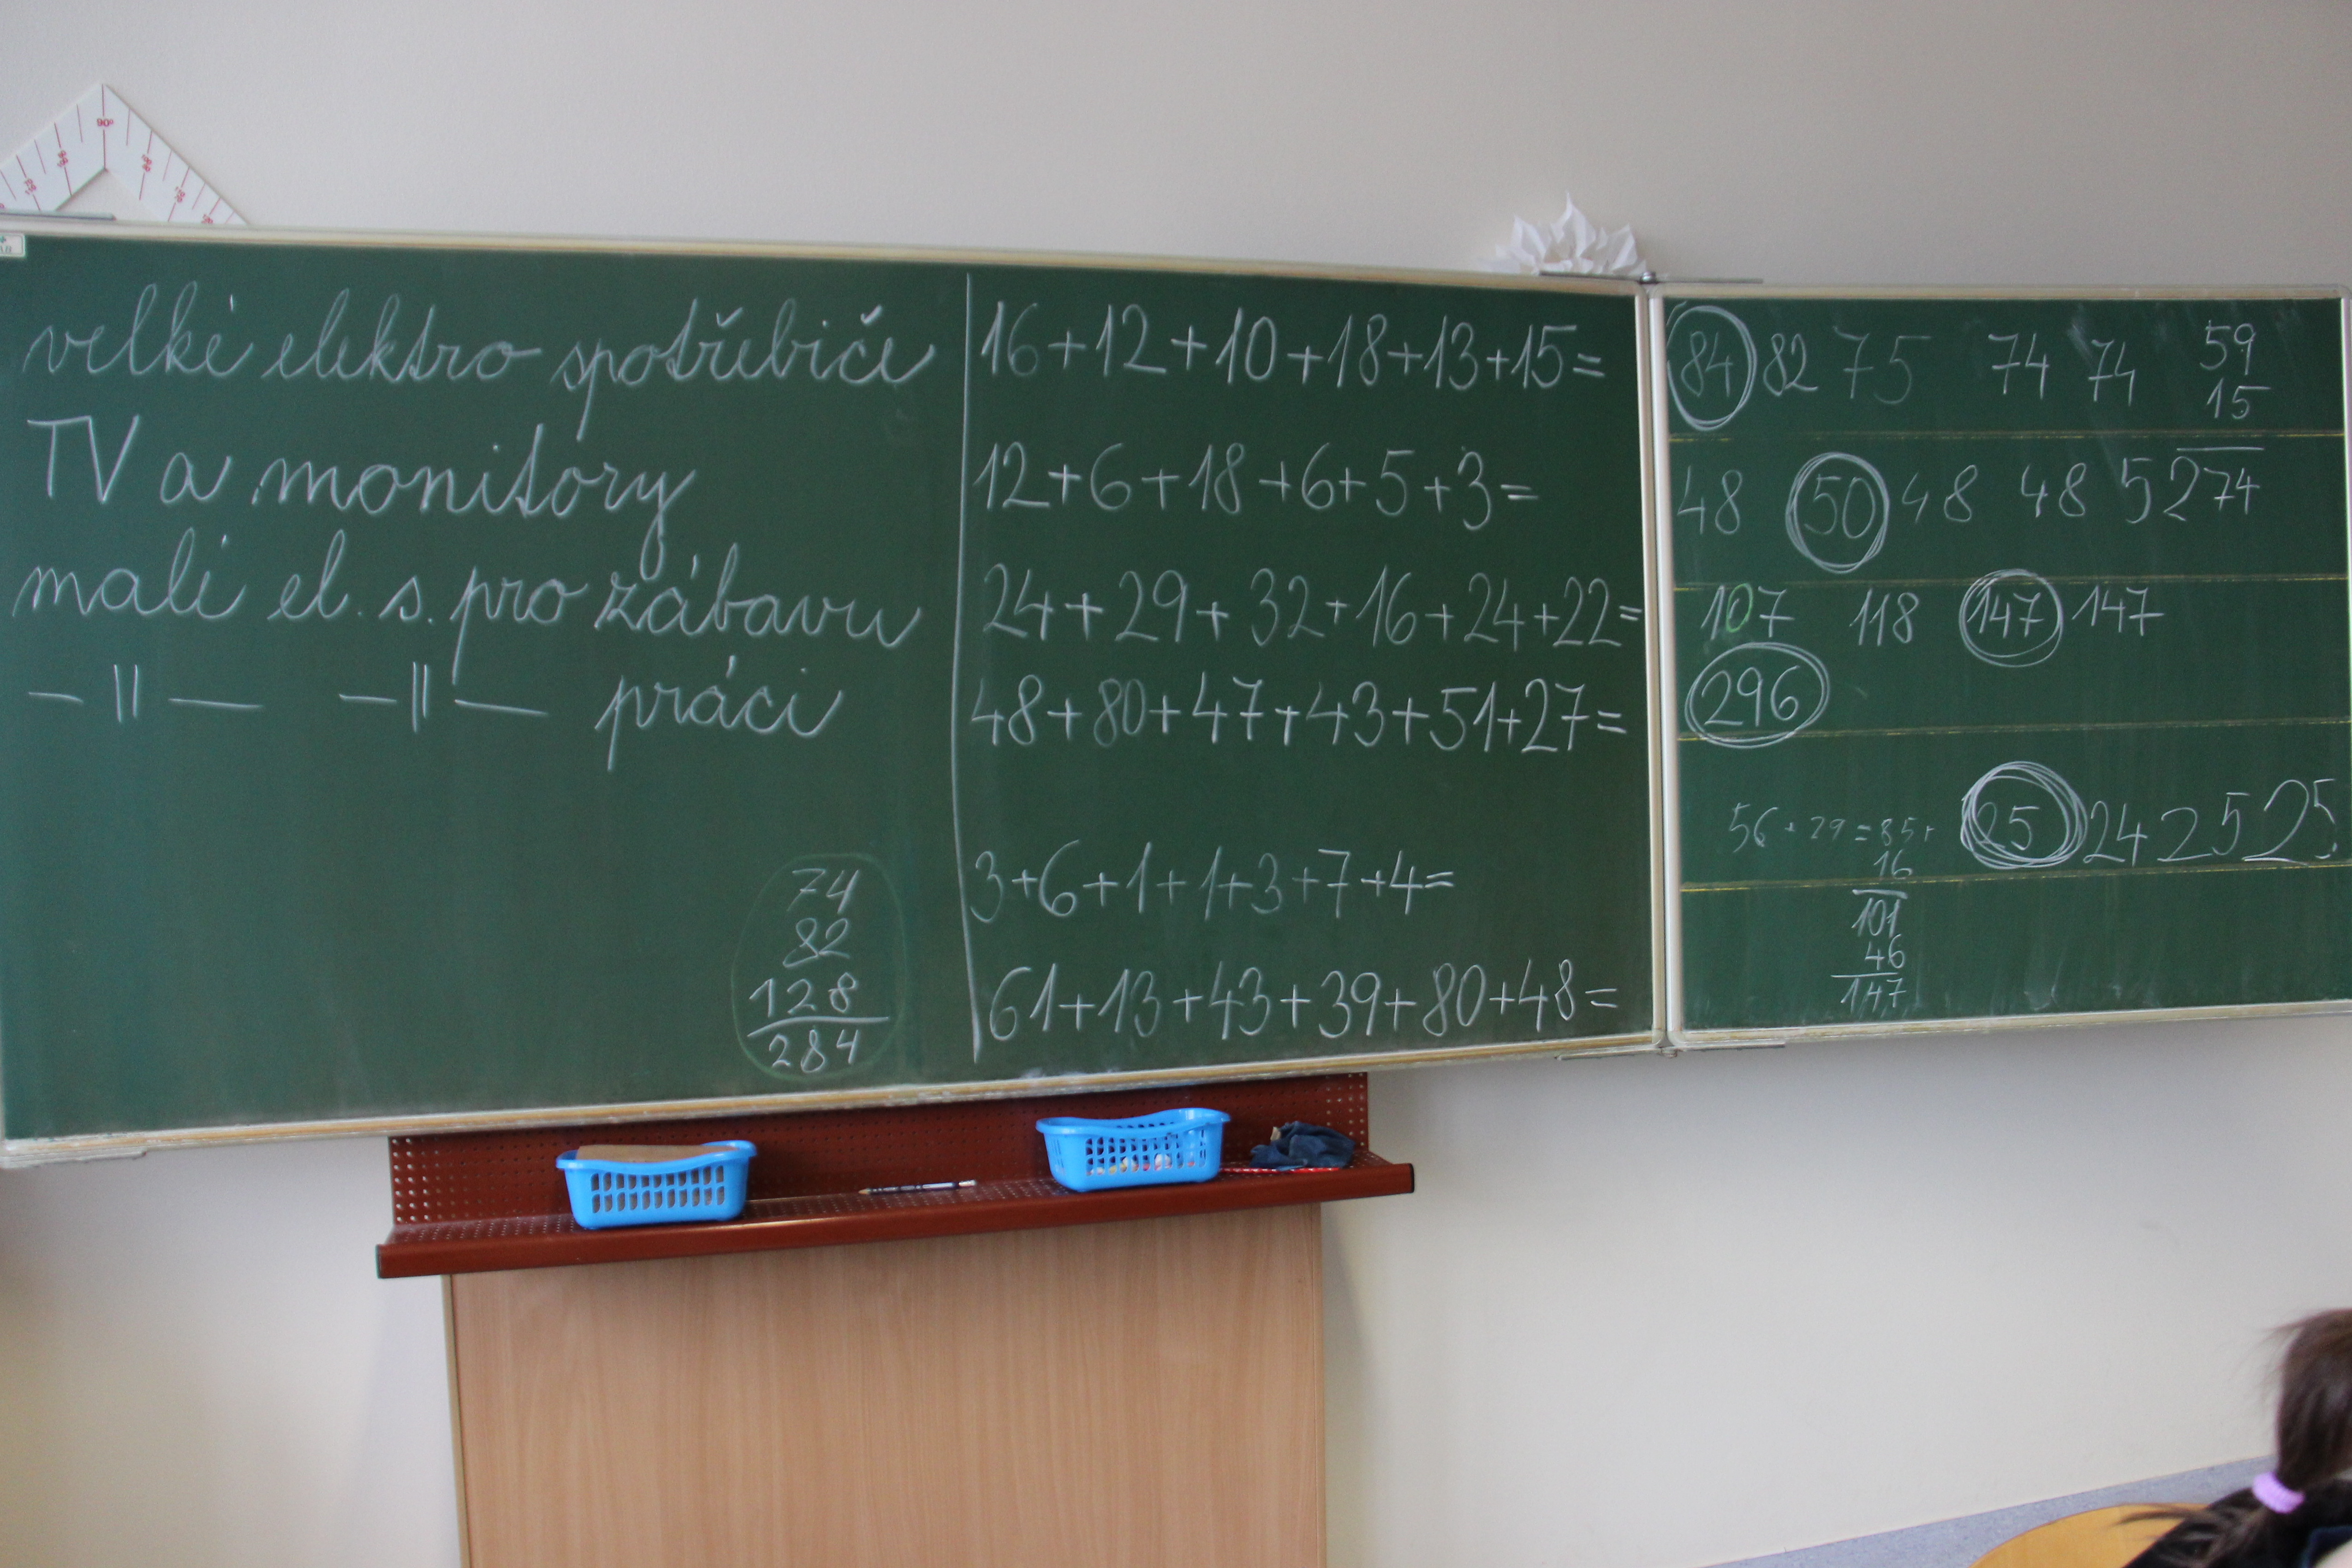 velké elektro spotřebiče
TV a monitory
malé el. s. pro zábavu
-||- -||- práci
74
82
128
284
16+12+10+18+13+15=
12+6+18+6+5+3=
24+29+32+16+24+22=
48+80+47+43+51+27=
3+6+1+1+3+7+4=
61+13+43+39+80+48=
84 82 75 74 74
59
15
74
48 50 48 48 52
107 118 147 147
296
56+29=85+
16
101
46
147
25 24 25 25
90°